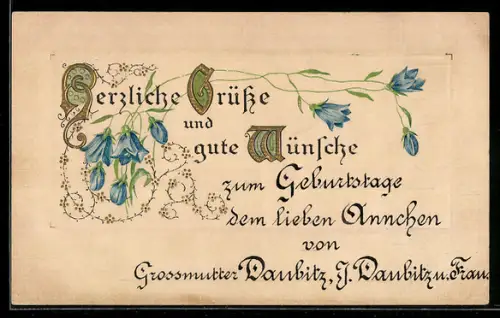 Herzliche Grüße
und
gute Wünsche
zum Geburtstage
dem lieben Annchen
von
Grossmutter Daubitz, J. Daubitz u. Frau.